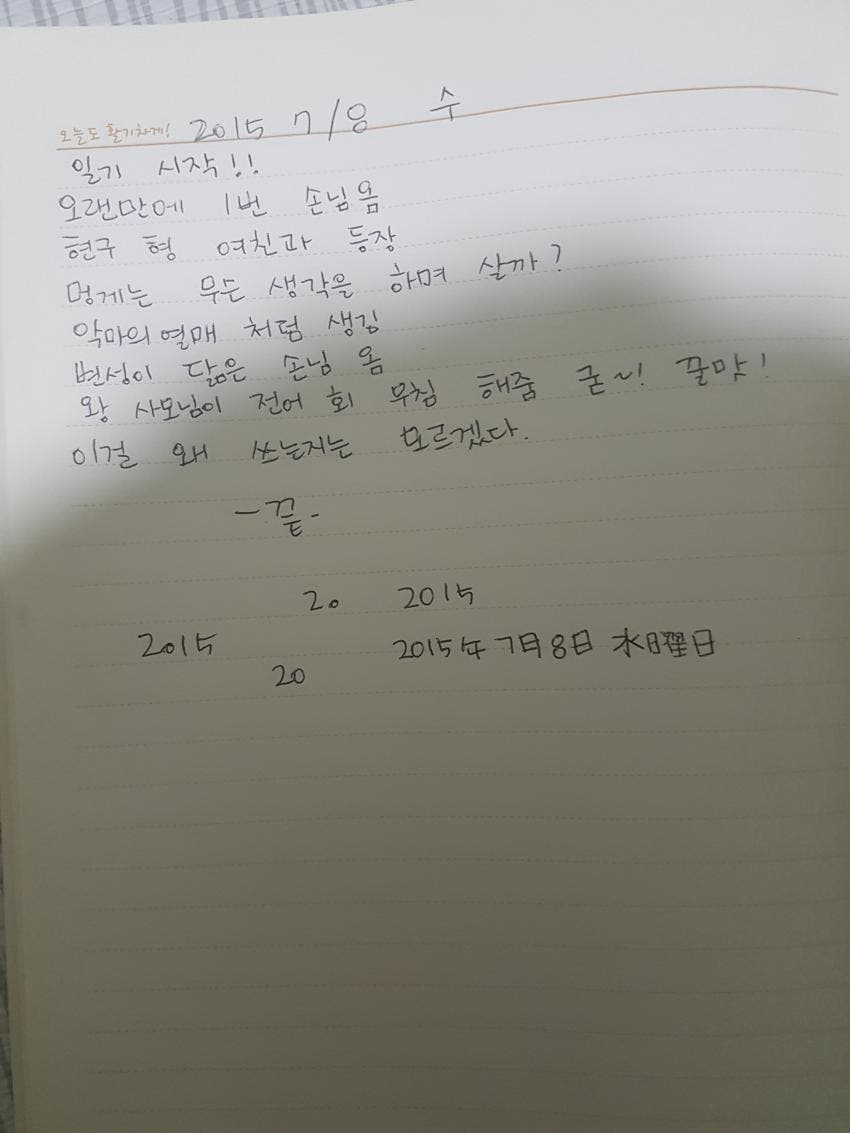 오늘도 활기차게! 2015 7/8 수
일기 시작!!
오랜만에 1번 손님옴
현구 형 여친과 등장
멍게는 무슨 생각을 하며 살까?
악마의 열매 처럼 생김
변성이 닮은 손님 옴
왕 사모님이 전어 회 무침 해줌 굳~! 꿀맛!
이걸 왜 쓰는지는 모르겠다.
-끝-
20 2015
2015 2015年 7月 8日 水曜日
20